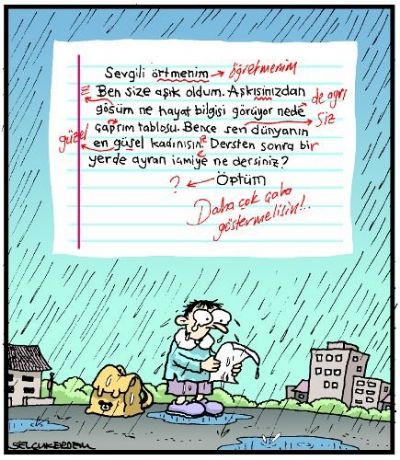 Sevgili örtmenim → öğretmenim
Ben size aşık oldum. Aşkısinızdan
gösüm ne hayat bilgisi görüyor nede de ayrı
çaprım tablosu. Bence sen dünyanın Siz
güzel en güsel kadınısın. Dersten sonra bir
yerde ayran içmiye ne dersiniz?
? Öptüm
Daha çok çaba
göstermelisin!..
SELÇUK ERDEM